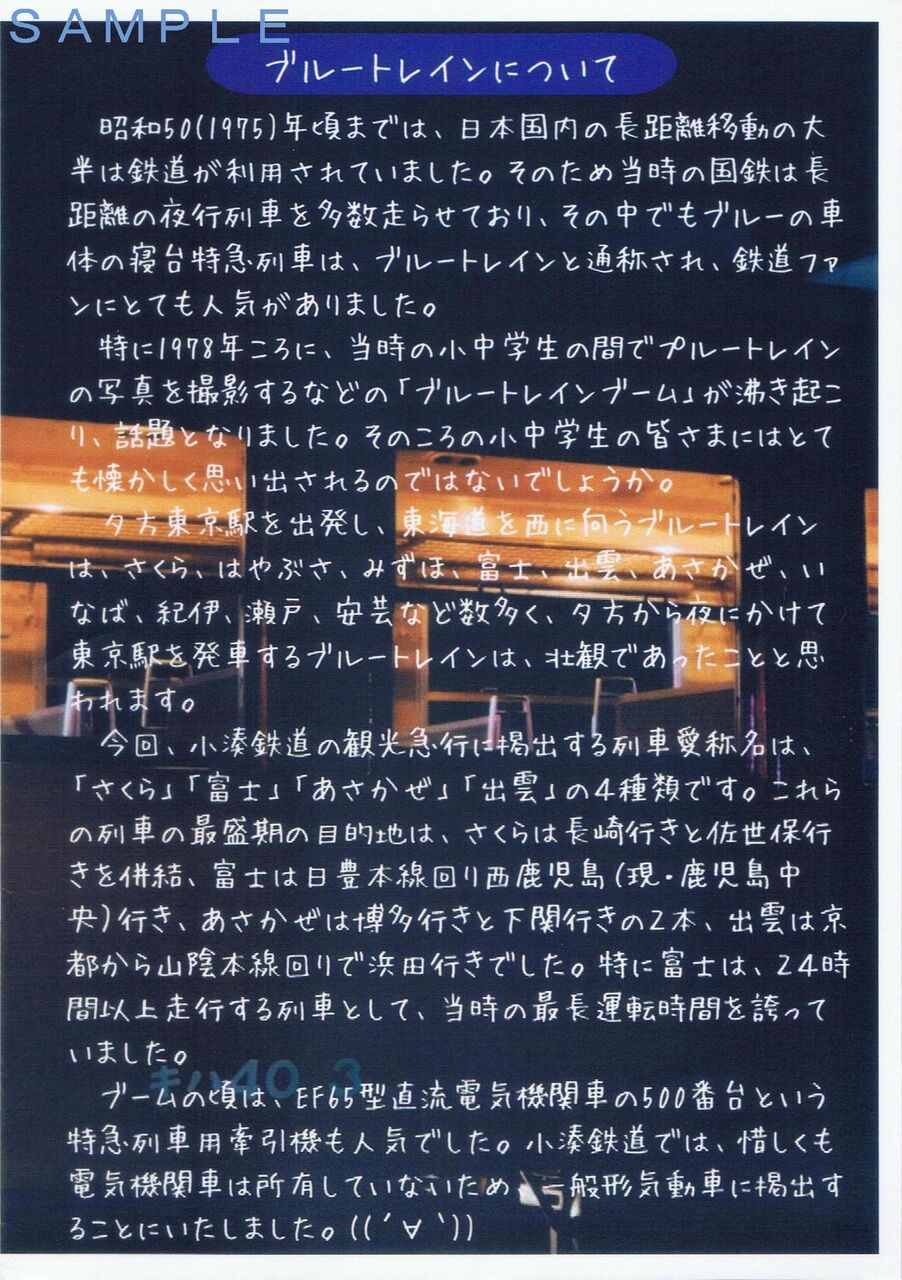 SAMPLE
ブルートレインについて
昭和50(1975)年頃までは、日本国内の長距離移動の大
半は鉄道が利用されていました。そのため当時の国鉄は長
距離の夜行列車を多数走らせており、その中でもブルーの車
体の寝台特急列車は、ブルートレインと通称され、鉄道ファ
ンにとても人気がありました。
特に1978年ころに、当時の小中学生の間でプルートレイン
の写真を撮影するなどの「ブルートレインブーム」が沸き起こ
り、話題となりました。そのころの小中学生の皆さまにはとて
も懐かしく思い出されるのではないでしょうか。
夕方東京駅を出発し、東海道を西に向うブルートレイン
は、さくら、はやぶさ、みずほ、富士、出雲、あさかぜ、い
なば、紀伊、瀬戸、安芸など数多く、夕方から夜にかけて
東京駅を発車するブルートレインは、壮観であったことと思
われます。
今回、小湊鉄道の観光急行に掲出する列車愛称名は、
「さくら」「富士」「あさかぜ」「出雲」の4種類です。これら
の列車の最盛期の目的地は、さくらは長崎行きと佐世保行
きを併結、富士は日豊本線回り西鹿児島(現・鹿児島中
央)行き、あさかぜは博多行きと下関行きの2本、出雲は京
都から山陰本線回りで浜田行きでした。特に富士は、24時
間以上走行する列車として、当時の最長運転時間を誇って
いました。
キハ40 3
ブームの頃は、EF65型直流電気機関車の500番台という
特急列車用牽引機も人気でした。小湊鉄道では、惜しくも
電気機関車は所有していないため、一般形気動車に掲出す
ることにいたしました。((´∀｀))